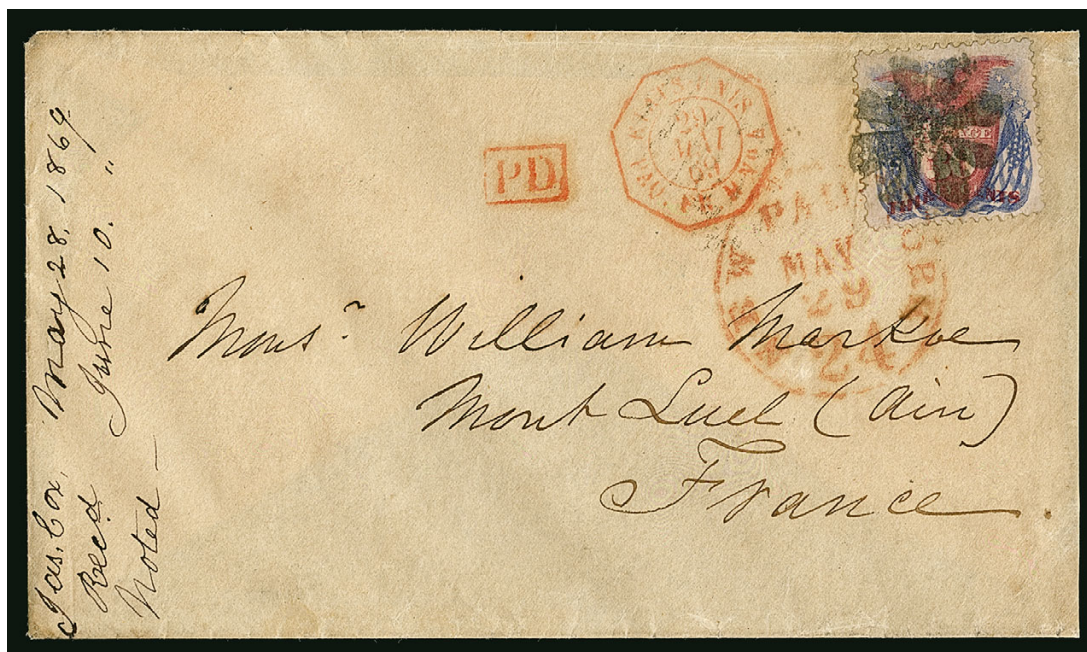 Jas. Cox, May 28, 1869
Rec'd June 10. "
Noted —
PD
29
MAI
69
PAID
NEW YORK
MAY
29
24
Mons.r William Markoe
Mont Luel (Ain)
France.